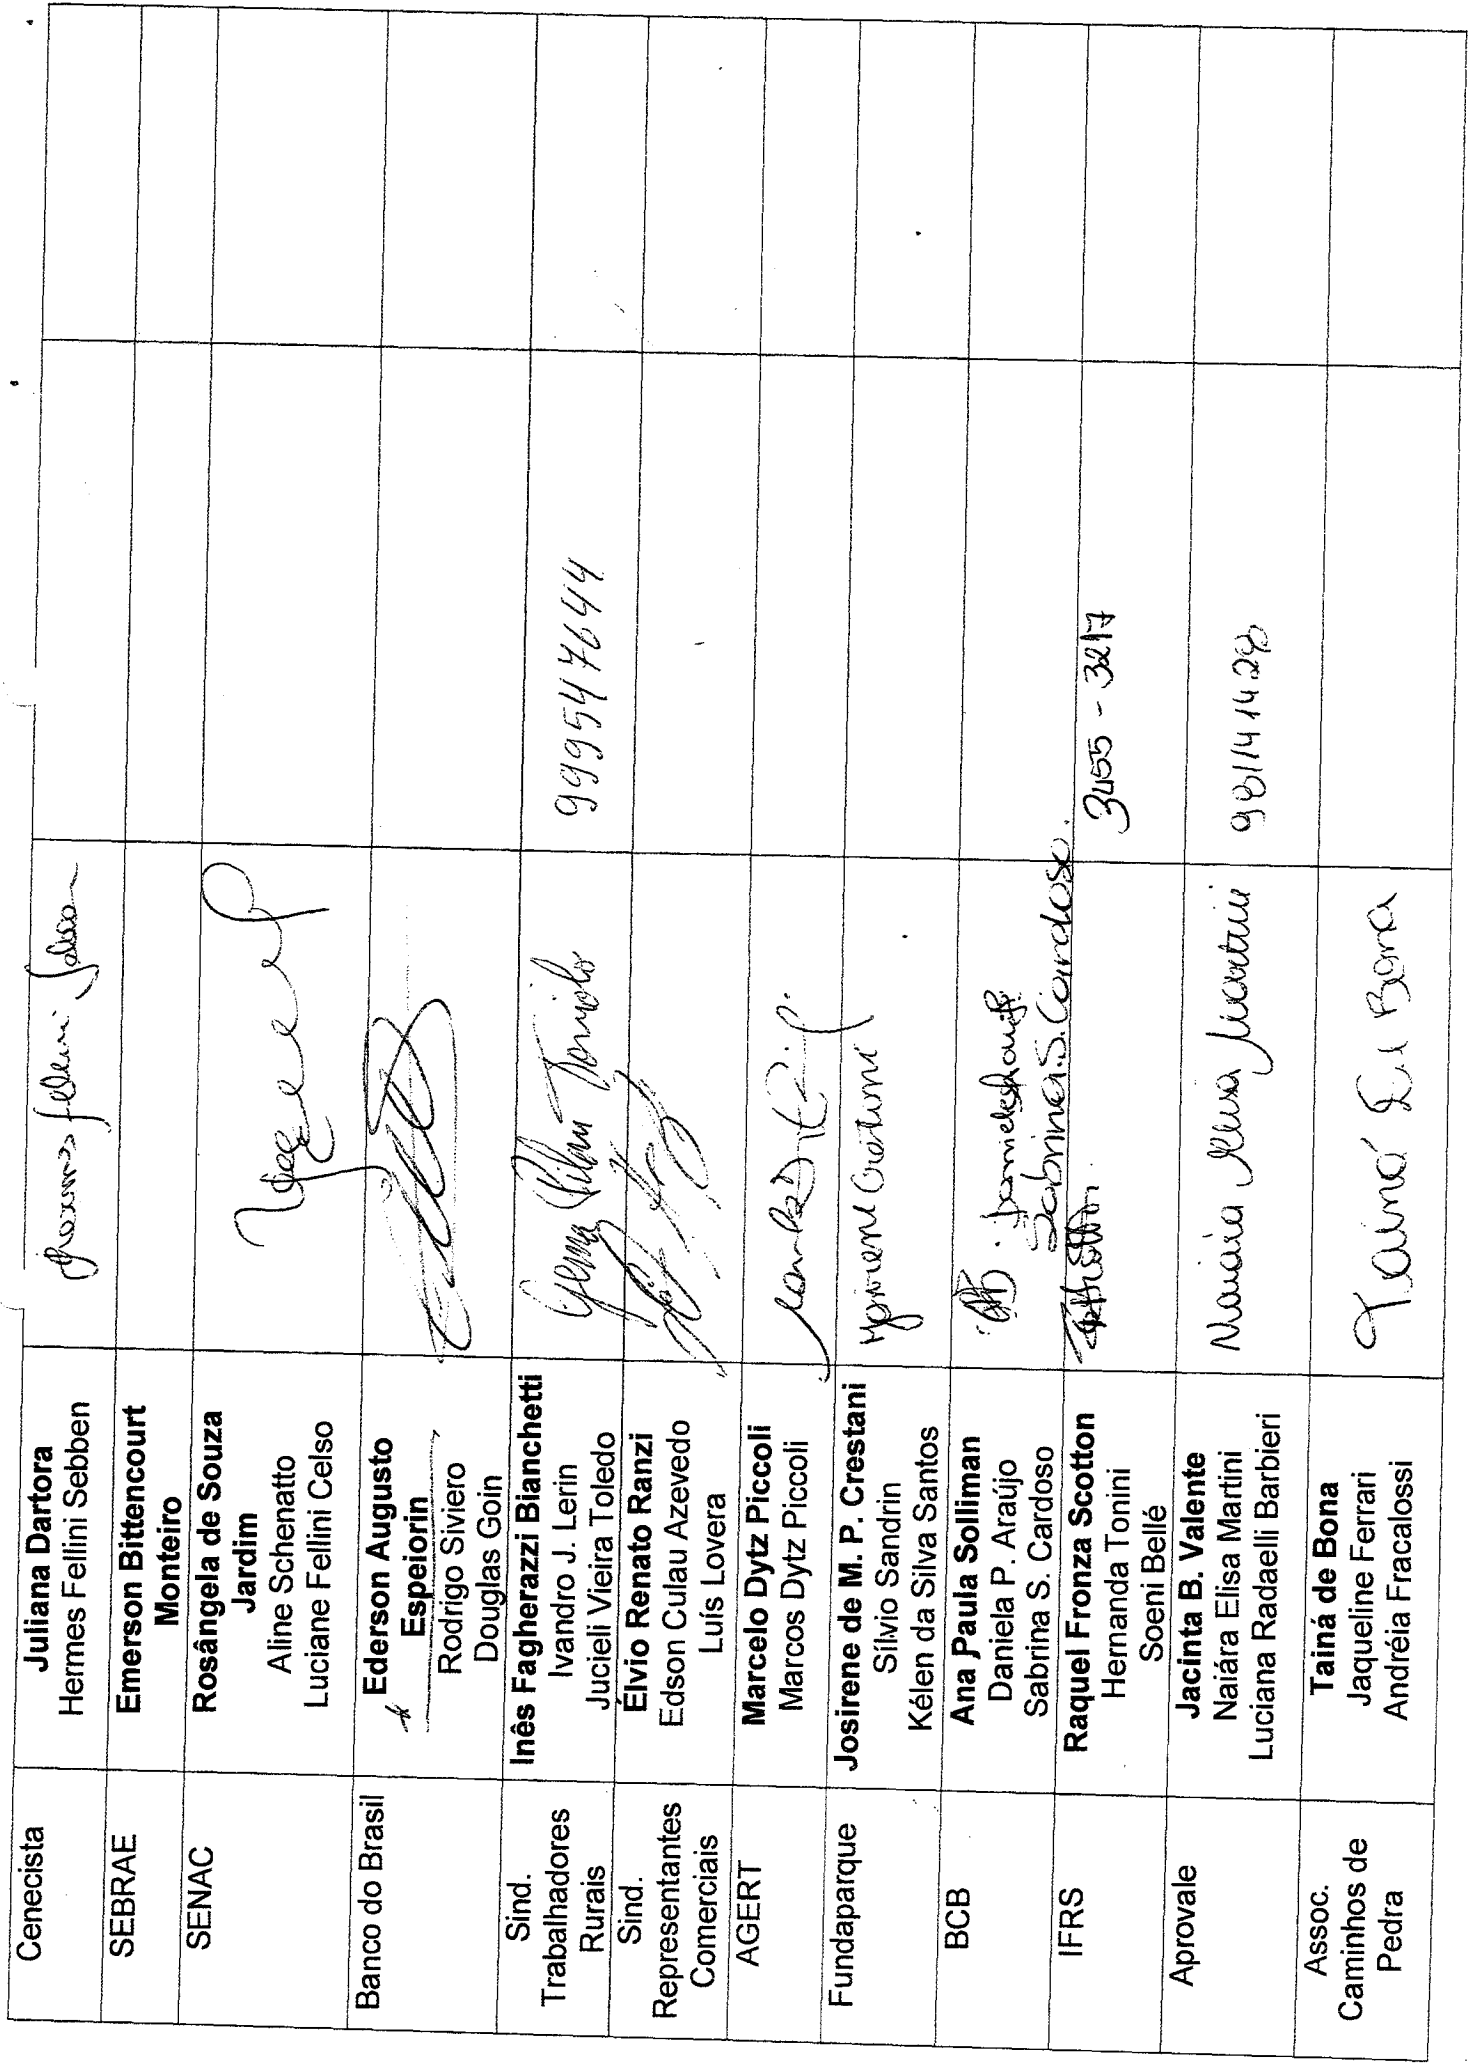 Cenecista
Juliana Dartora
Hermes Fellini Sebben
Hermes Fellini Sebben
SEBRAE
Emerson Bittencourt
Monteiro
SENAC
Rosângela de Souza
Jardim
Aline Schenatto
Luciane Fellini Celso
Banco do Brasil
Ederson Augusto
Espeiorin
Rodrigo Siviero
Douglas Goin
Sind.
Trabalhadores
Rurais
Inês Fagherazzi Bianchetti
Ivandro J. Lerin
Jucieli Vieira Toledo
999547644
Sind.
Representantes
Comerciais
Élvio Renato Ranzi
Edson Culau Azevedo
Luís Lovera
AGERT
Marcelo Dytz Piccoli
Marcos Dytz Piccoli
Fundaparque
Josirene de M. P. Crestani
Sílvio Sandrin
Kélen da Silva Santos
BCB
Ana Paula Solliman
Daniela P. Araújo
Sabrina S. Cardoso
Sabrina S. Cardoso.
IFRS
Raquel Fronza Scotton
Hernanda Tonini
Soeni Bellé
3455-3217
Aprovale
Jacinta B. Valente
Naiára Elisa Martini
Luciana Radaelli Barbieri
981141428
Assoc.
Caminhos de
Pedra
Tainá de Bona
Jaqueline Ferrari
Andréia Fracalossi
Tainá De Bona